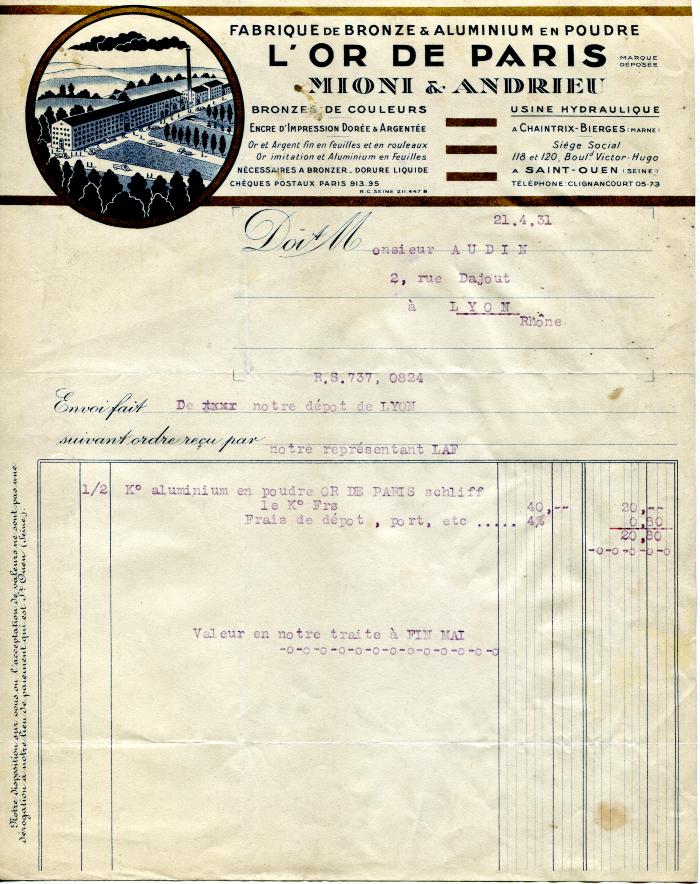 FABRIQUE DE BRONZE & ALUMINIUM EN POUDRE
L'OR DE PARIS
MARQUE
DÉPOSÉE
MIONI & ANDRIEU
BRONZES DE COULEURS
ENCRE D'IMPRESSION DORÉE & ARGENTÉE
Or et Argent fin en feuilles et en rouleaux
Or imitation et Aluminium en Feuilles
NÉCESSAIRES A BRONZER _ DORURE LIQUIDE
CHÈQUES POSTAUX PARIS 913.95
R.C. SEINE 211.447 B
USINE HYDRAULIQUE
A CHAINTRIX-BIERGES (MARNE)
Siége Social
118 et 120, Boulᵈ Victor-Hugo
A SAINT-OUEN (SEINE)
TÉLÉPHONE: CLIGNANCOURT 05-73
21.4.31
Doit Monsieur AUDIN
2, rue Dajout
à LYON
Rhône
R.S.737, 0824
Envoi fait De xxxx notre dépot de LYON
suivant ordre reçu par notre représentant LAF
1/2 K° aluminium en poudre OR DE PARIS schliff
le K° Frs 40,-- 20,--
Frais de dépot , port, etc ..... 4% 0,80
20,80
-o-o-o-o-o
Valeur en notre traite à FIN MAI
-o-o-o-o-o-o-o-o-o-o-o-o-o
Notre disposition sur vous ou l'acceptation de valeurs ne sont pas une
dérogation à notre lieu de paiement qui est St Ouen (Seine).